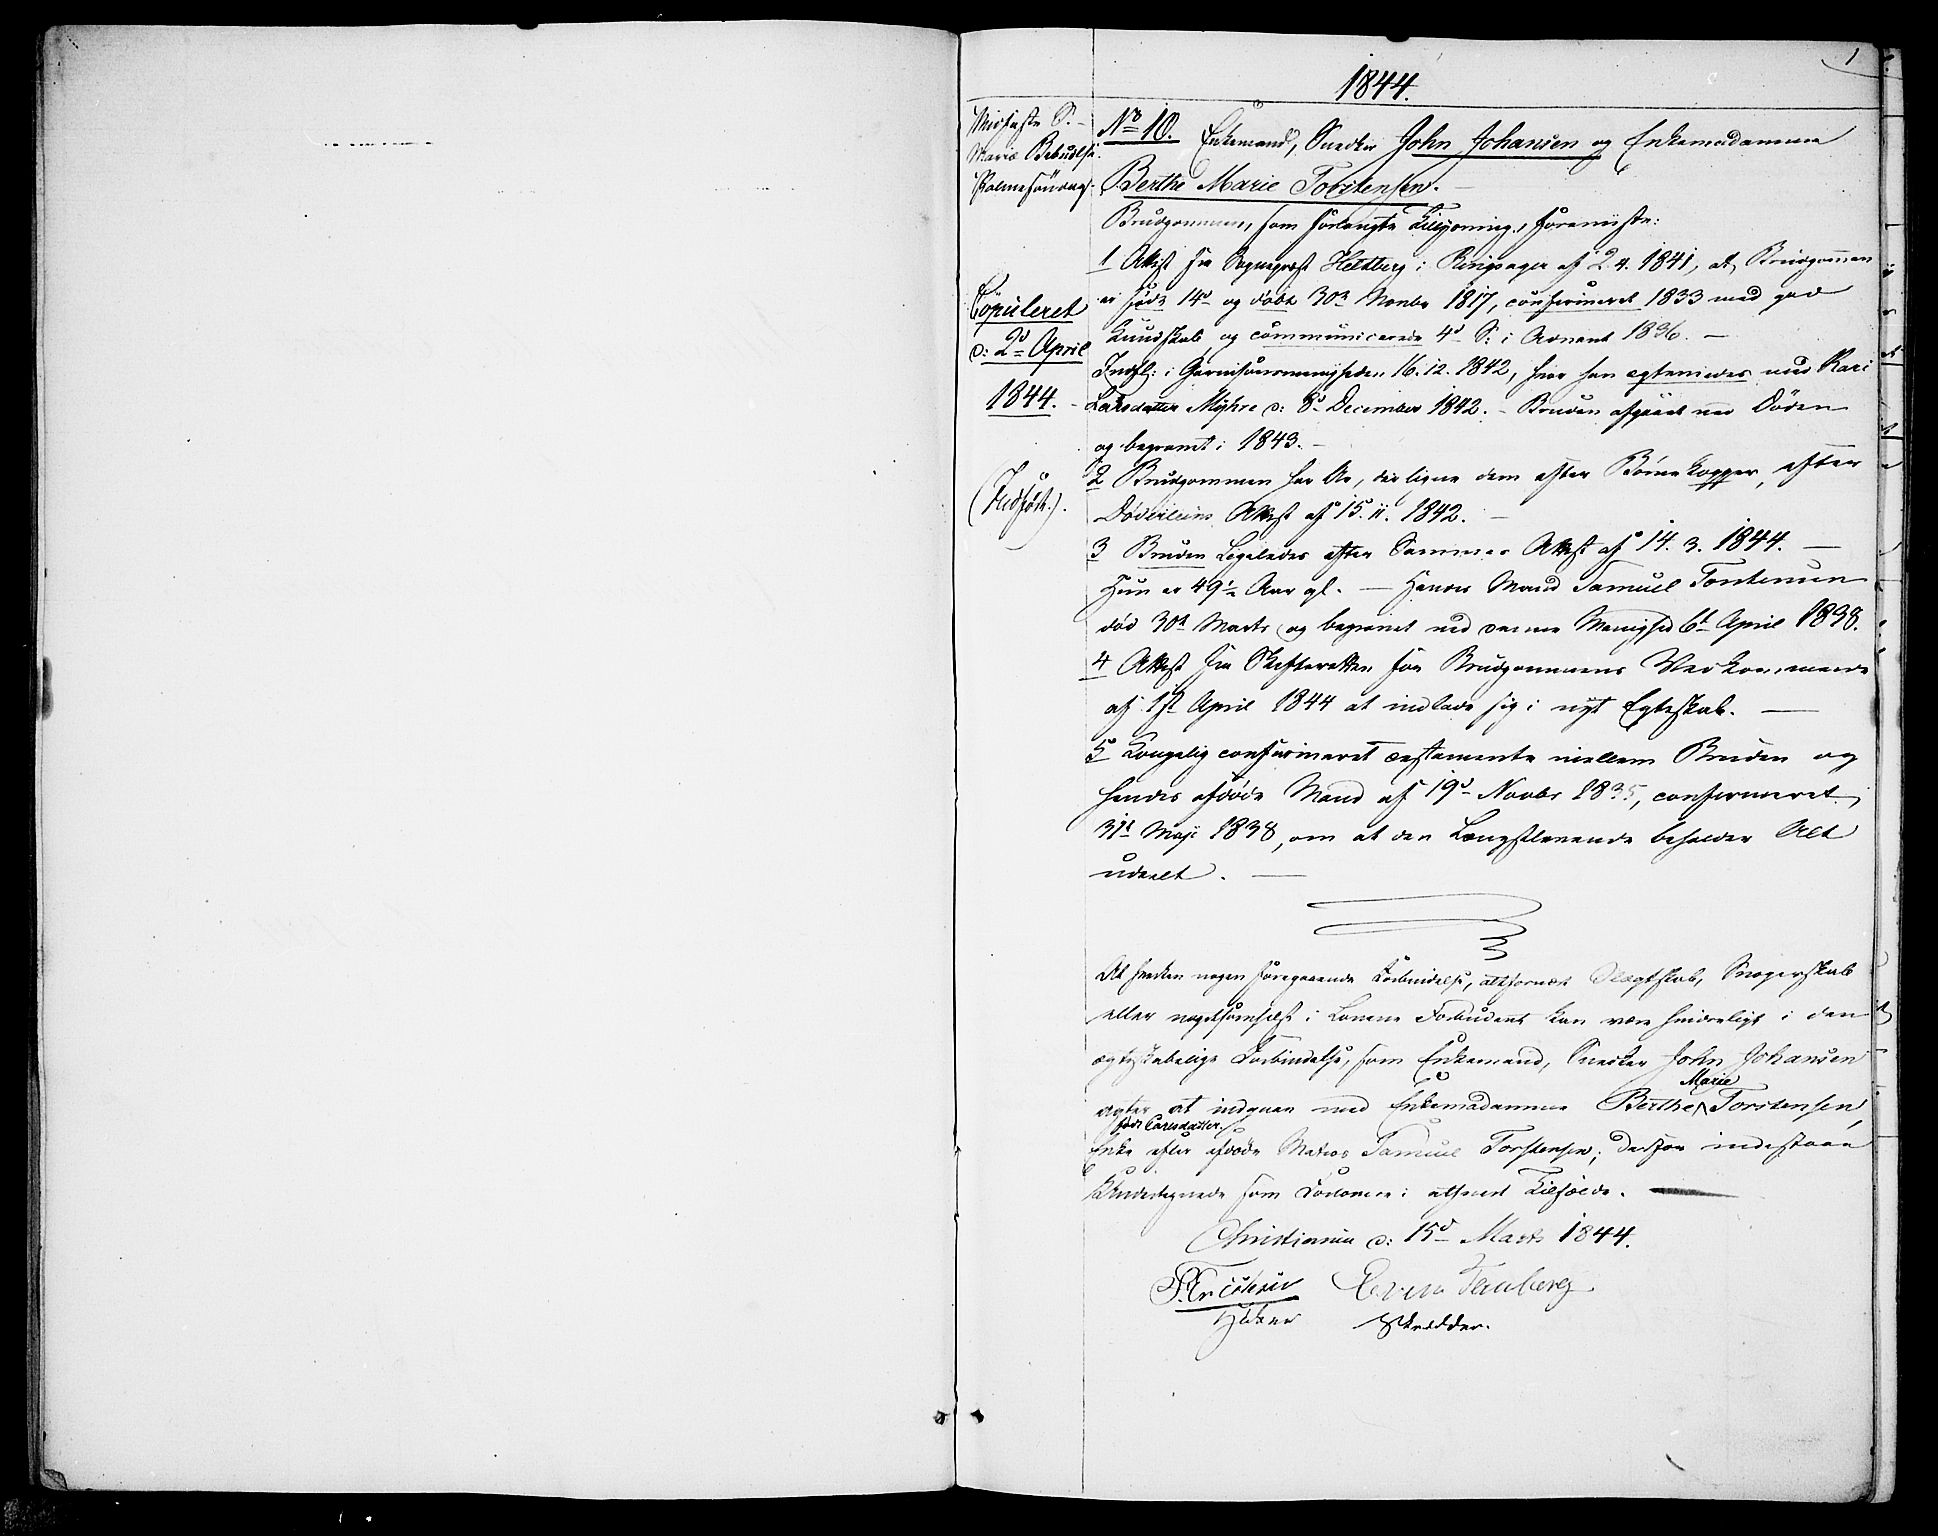 1
1844.
Midfaste S. –
Mariæ Bebudelse.
Palmesöndag.
Copuleret
d: 2d April
1844.
(Indført.).
No 10. Enkemand, Snedker John Johansen og Enkemadamme
Berthe Marie Torstensen. –
Brudgommen, som forlangte Lysning, foreviiste:
1 Attest fra Sognepræst Heltberg i Ringsager af 2. 4. 1841, at Brudgommen
er född 14d og döbt 30te Novbr 1817, confirmeret 1833 med god
Kundskab, og communicerede 4d S: i Advent 1836. –
Indfl: i Garnisonsmenigheden 16. 12. 1842, hvor han ægteviedes med Kari
Larsdatter Myhre d: 8d December 1842. – Bruden afgaaet ved Döden
og begravet i 1843. –
2 Brudgommen har Ar, der ligne dem efter Börnekopper, efter
Döderleins Attest af 15. 11. 1842. –
3 Bruden Ligeledes efter Sammes Attest af 14. 3. 1844. –
Hun er 49 Aar gl. – Hendes Mand Samuel Torstensen
död 30te Marts og begravet ved denne Menighed 6t April 1838.
4 Attest fra Skifteretten for Brudgommens Vedkommende
af 1st April 1844 at indlade sig i nyt Egteskab. –
5 Kongelig confirmeret Testamente mellem Bruden og
hendes afdöde Mand af 19d Novbr 1835, confirmeret
31t Maji 1838, om at den Længstlevende beholder Alt
udeelt. –
At hverken nogen foregaaende Forbindelse, altfornær Slægtskab, Svogerskab
eller nogetsomhelst i Lovene Forbudent kan være hinderligt i den
ægteskabelige Forbindelse, som Enkemand, Snedker John Johansen
agter at indgaae med Enkemadamme Berthe Marie Torstensen,
född Carlsdatter,
Enke efter afdöde Samuel Torstensen; derfor indestaae
Undertegnede som Forlovere i ethvert Tilfælde. –
Christiania d: 15d Marts 1844.
Even Tenberg
Skrædder.